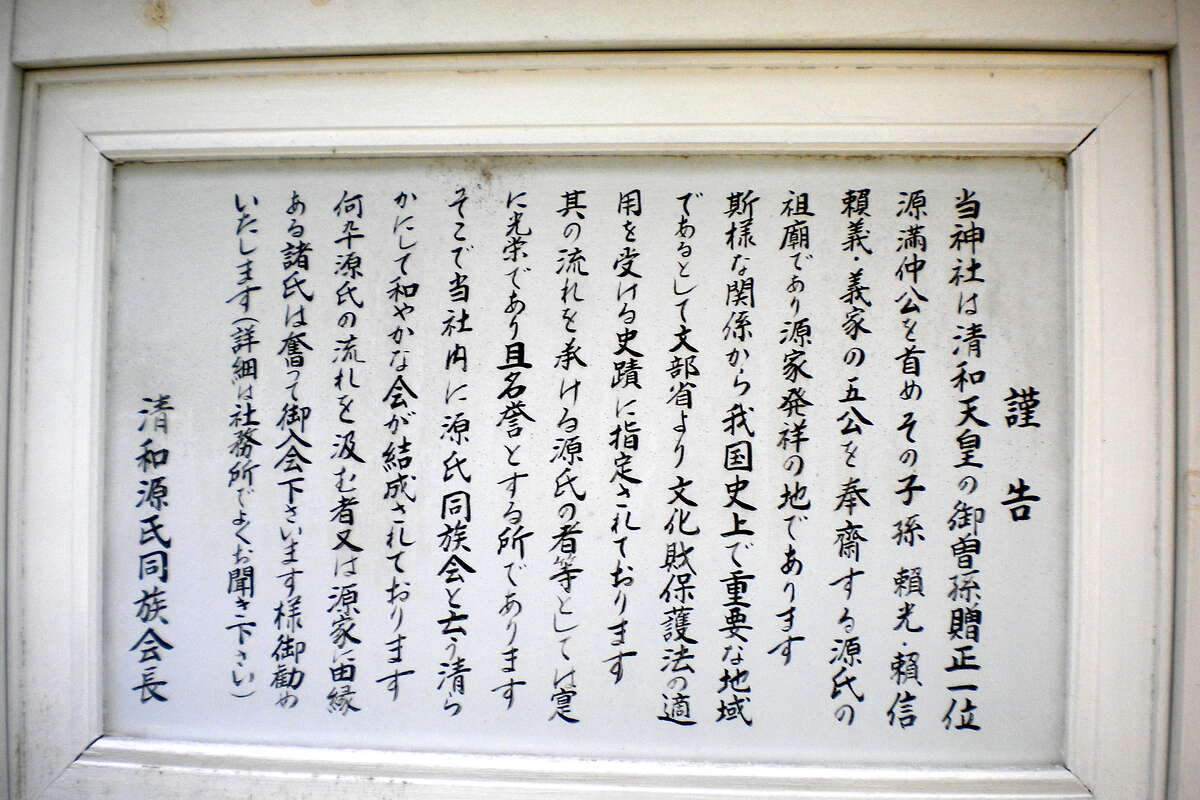 謹告
当神社は清和天皇の御曽孫贈正一位
源満仲公を首めその子孫 頼光・頼信
頼義・義家の五公を奉齋する源氏の
祖廟であり源家発祥の地であります
斯様な関係から我国史上で重要な地域
であるとして文部省より文化財保護法の適
用を受ける史蹟に指定されております
其の流れを承ける源氏の者等としては寔
に光栄であり且名誉とする所であります
そこで当社内に源氏同族会と云う清ら
かにして和やかな会が結成されております
何卆源氏の流れを汲む者又は源家に由縁
ある諸氏は奮って御入会下さいます様御勧め
いたします(詳細は社務所でよくお聞き下さい)
清和源氏同族会長